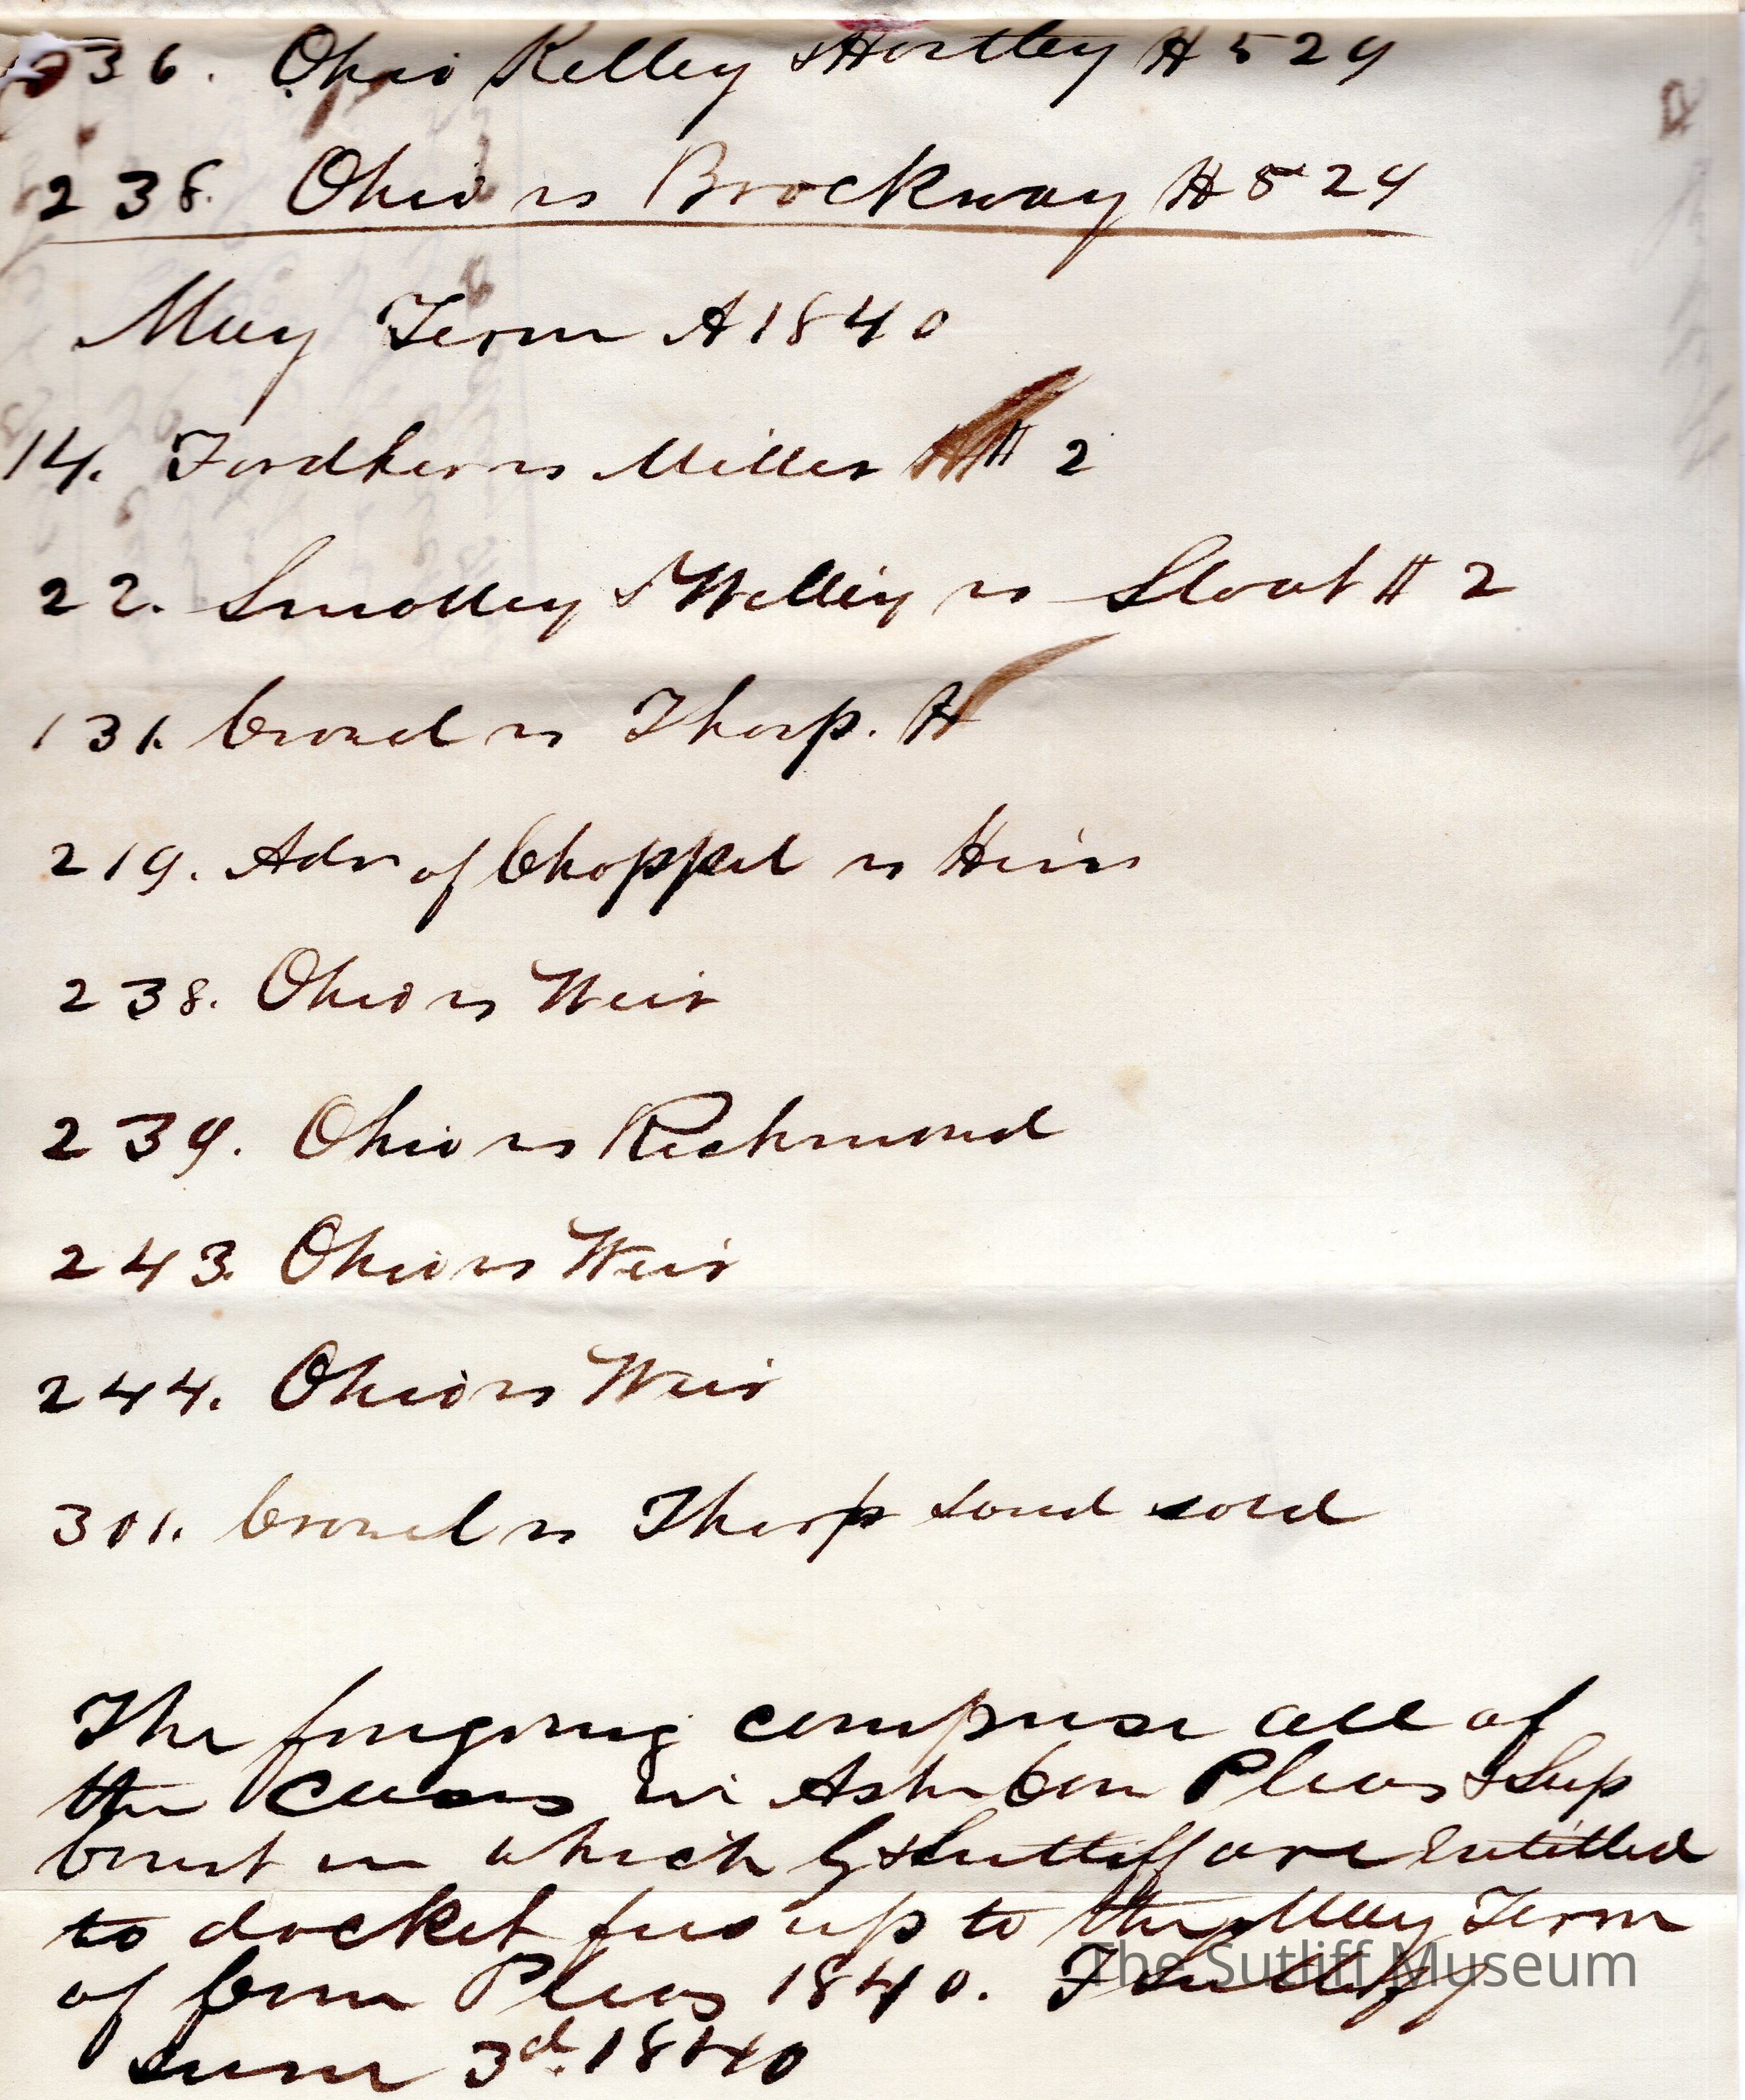 236. Ohio Kelley & Hartley H 529
238. Ohio vs Brockway H 529
May Term A 1840
14. vs Miller H 2
22. Smalley & Welley vs Sloat H 2
131. Crowel vs Thorp. H
219. Adr of Chappel vs Heirs
238. Ohio vs Weir
239. Ohio vs Richmond
243. Ohio vs Weir
244. Ohio vs Weir
301. Crowel vs Thorp Land sold
The foregoing comprise all of
the cases in Ash Com Pleas & Sup
Court in which G & Sutliff are entitled
to docket fees up to the May Term
of Com Pleas 1840. F Sutliff
June 3d. 1840
The Sutliff Museum